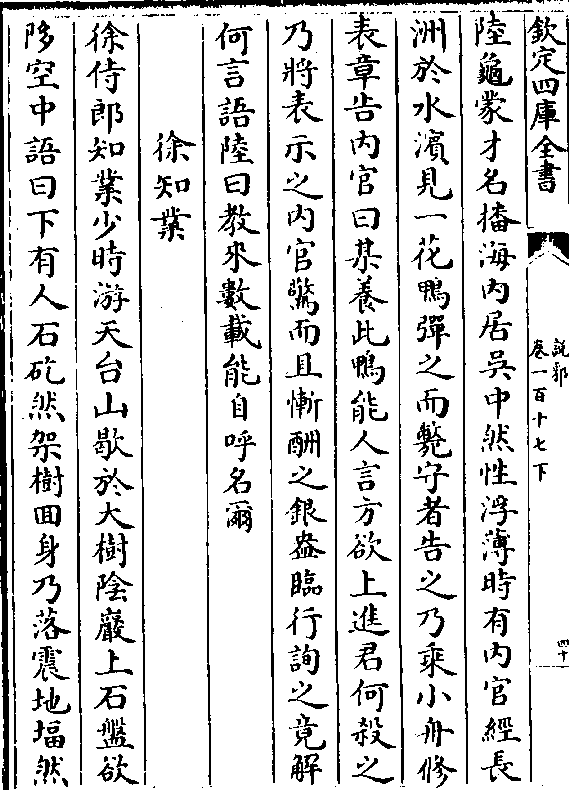 欽定四庫全書
說郛
卷一百十七下
四十
陸龜蒙才名播海內居吳中然性浮薄時有內官經長
洲於水濱見一花鴨彈之而斃守者告之乃乘小舟修
表章告內官曰某養此鴨能人言方欲上進君何殺之
乃將表示之內官驚而且慚酬之銀盎臨行詢之竟解
何言語陸曰教來數載能自呼名爾
徐知業
徐侍郎知業少時游天台山歇於大樹陰巖上石盤欲
陊空中語曰下有人石矻然架樹回身乃落震地堛然